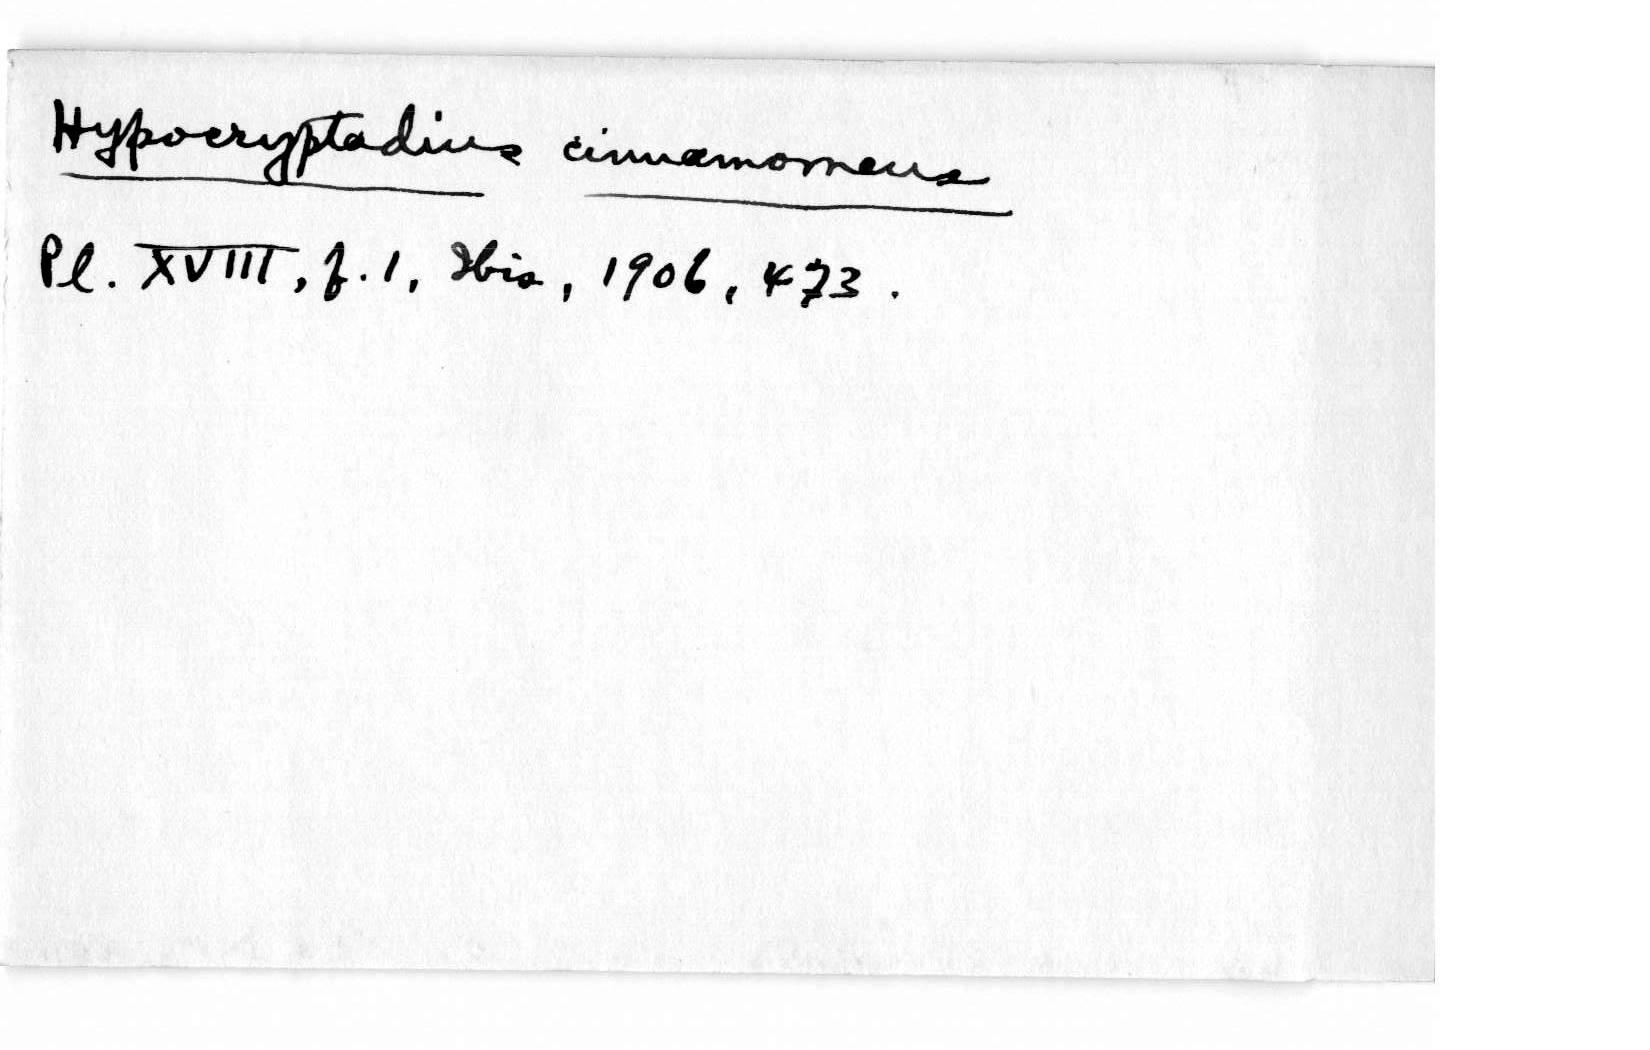 Hypocryptadius cinnamomeus
Pl. XVIII, f. 1, Ibis, 1906, 473.